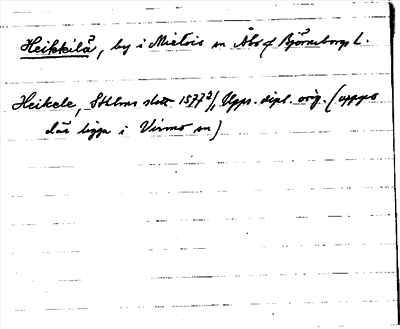 Heikkilä, by i Mietois sn Åbo o. Björneborgs L.
Heikele, Sthlms slott 1577 2/1 Upps. dipl. orig. (uppg.
där ligga i Virmo sn)